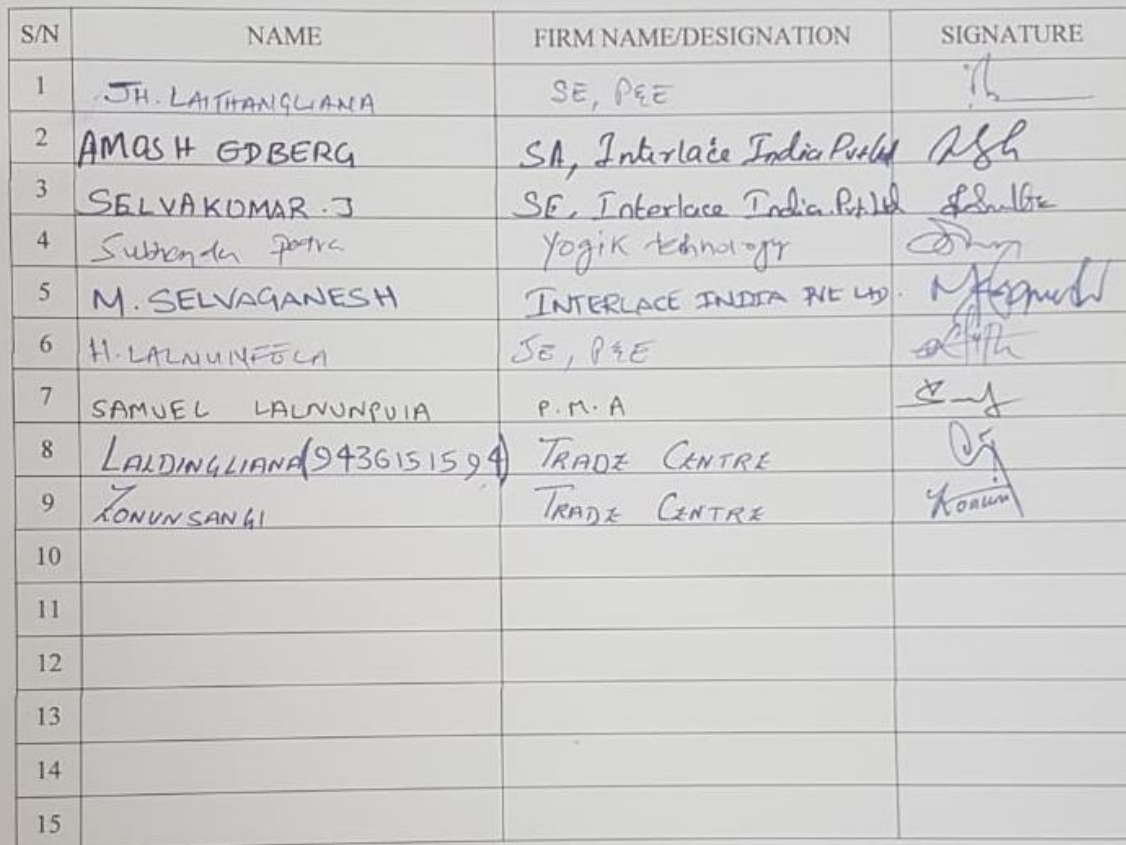 S/N NAME FIRM NAME/DESIGNATION SIGNATURE
1 JH. LALTHANGLIANA SE, P&E
2 AMOSH EDBERG SA, Interlace India Pvt Ltd
3 SELVAKUMAR.J SE, Interlace India Pvt. Ltd
4 Yogik
5 M. SELVAGANESH INTERLACE INDIA PVT LTD.
6 JE, P&E
7 SAMUEL LALNUNPUIA P.M.A
8 LALDINGLIANA (9436151594) TRADE CENTRE
9 ZONUNSANGI TRADE CENTRE
10
11
12
13
14
15